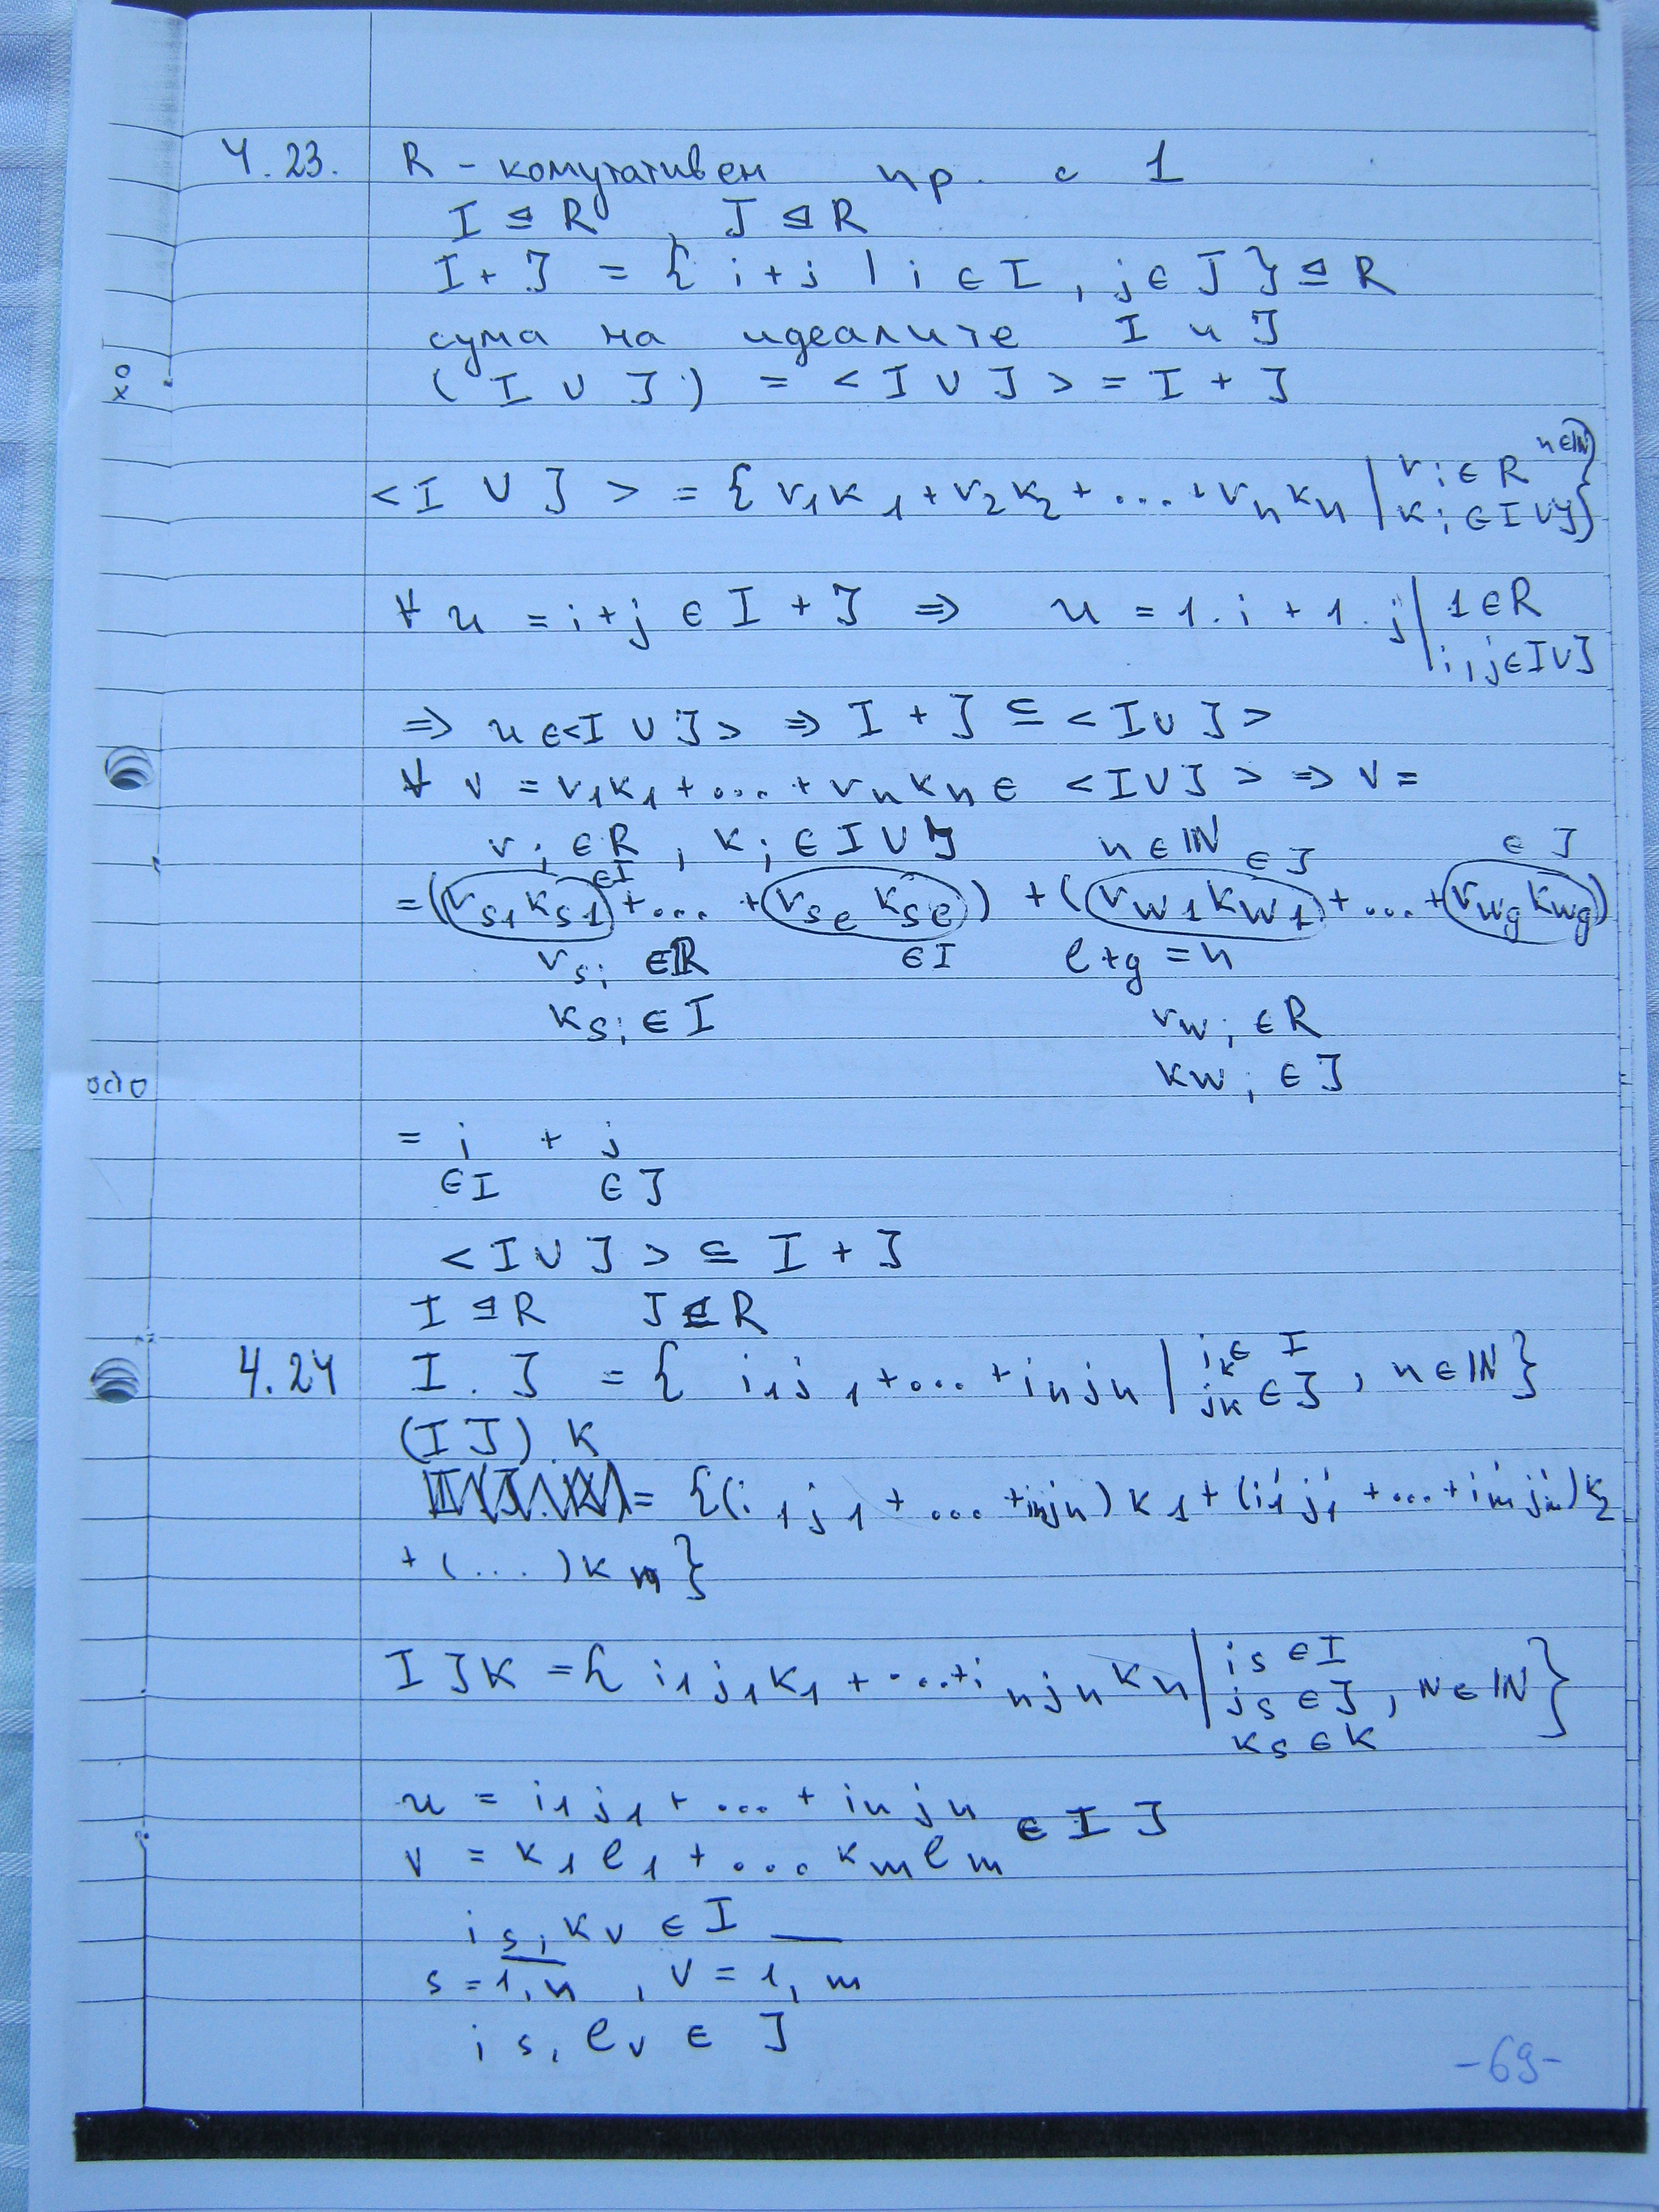 4.23. R - комутативен пр. с 1
I ⊴ R , J ⊴ R
I + J = { i + j | i ∈ I , j ∈ J } ⊴ R
сума на идеалите I и J
( I ∪ J ) = < I ∪ J > = I + J
< I ∪ J > = { r₁k₁ + r₂k₂ + ... + rₙkₙ | rᵢ ∈ R n∈ℕ
kᵢ ∈ I ∪ J }
∀ u = i + j ∈ I + J ⇒ u = 1 . i + 1 . j | 1 ∈ R
i , j ∈ I ∪ J
⇒ u ∈ < I ∪ J > ⇒ I + J ⊆ < I ∪ J >
∀ v = r₁k₁ + ... + rₙkₙ ∈ < I ∪ J > ⇒ v =
rᵢ ∈ R , kᵢ ∈ I ∪ J n ∈ ℕ
∈ I ∈ J ∈ J
= (r_s1 k_s1 + ... + r_se k_se) + (r_w1 k_w1 + ... + r_wg k_wg)
r_si ∈ R ∈ I e + g = n
k_si ∈ I r_wi ∈ R
k_wi ∈ J
= i + j
∈ I ∈ J
< I ∪ J > ⊆ I + J
I ⊴ R J ⊴ R
4.24 I . J = { i₁j₁ + ... + iₙjₙ | i_k ∈ I
j_k ∈ J , n ∈ ℕ }
(I J) . K
= {(i₁j₁ + ... + iₙjₙ) k₁ + (i₁'j₁' + ... + iₘ'jₘ') k₂
+ (...) kₘ }
I J K = { i₁j₁k₁ + ... + iₙjₙkₙ | i_s ∈ I
j_s ∈ J , n ∈ ℕ }
k_s ∈ K
u = i₁j₁ + ... + iₙjₙ
∈ I J
v = k₁e₁ + ... kₘeₘ
i_s, k_v ∈ I
s = 1, n , v = 1, m
i_s, e_v ∈ J
-69-